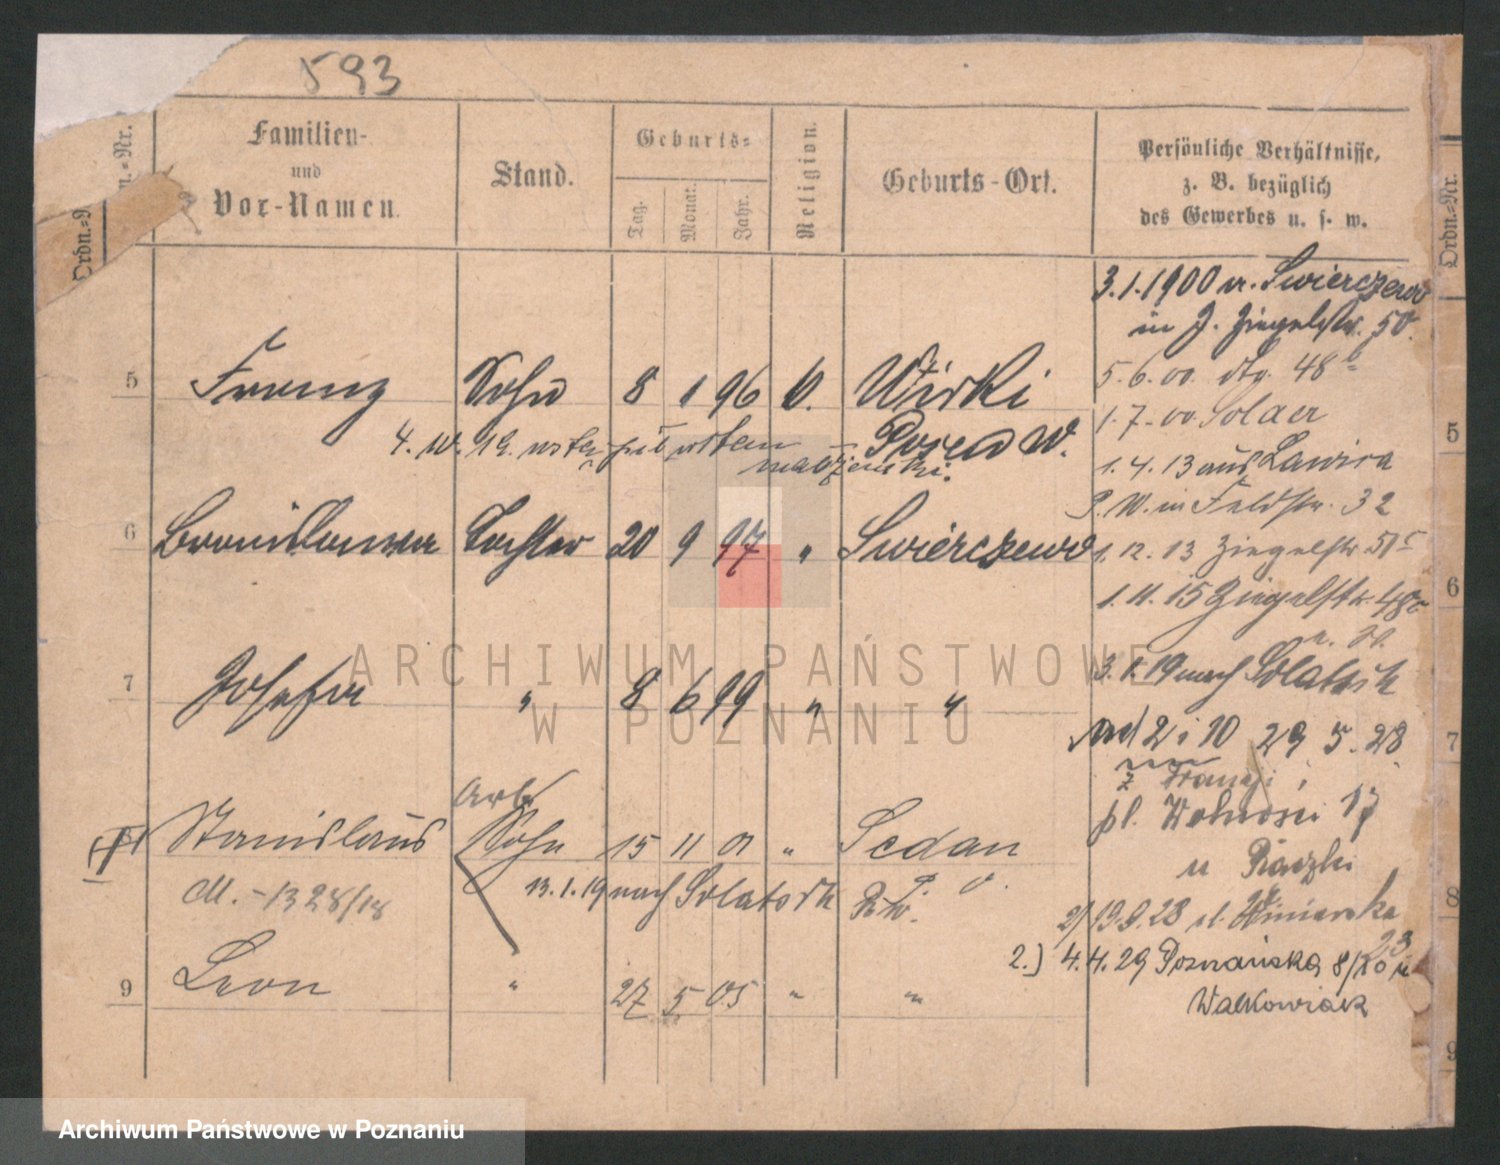 593
Ordn.=Nr.
Familien- und Vor-Namen.
Stand.
Geburts=
Tag.
Monat.
Jahr.
Religion.
Geburts-Ort.
Persönliche Verhältnisse,
z. B. bezüglich
des Gewerbes u. s. w.
Ordn.=Nr.
3.1.1900 v. Swierczewo
in J. Ziegelstr. 50.
5 Franz Sohn 8 1 96 k. Wirki
5.6.00. dtg. 48b
1.7.00 Solacz
4. W. 19.
Posen W.
małżeński.
5
1.4.13 aus Lawica
P. W. in Feldstr. 32
6 Bronislawa Tochter 20 9 97 " Swierczewo
1.12.13 Ziegelstr. 51
1.11.15 Ziegelstr. 48
6
7 Josefa " 8 6 99 " "
3.1.19 nach Solatsch
ad 2 i 10 29 5. 28
7
z Franciszki
Arb.
8 Stanislaus Sohn 15 11 01 " Sedan
pl. Wolności 17
u Raczki
M. - 1328/18
13.1.19 nach Solatsch
8
2/ 19.9.28 ul. Winiarska
23
2.) 4.4. 29 Poznańska 8/10 u
Walkowiak
9 Leon " 27 5 05 " "
9
ARCHIWUM PAŃSTWOWE
W POZNANIU
Archiwum Państwowe w Poznaniu